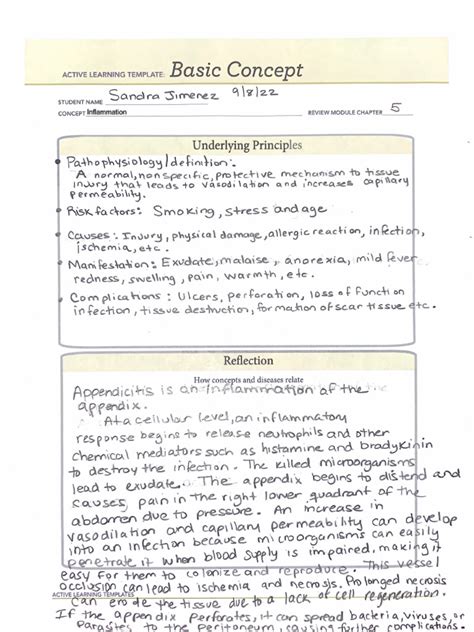 ACTIVE LEARNING TEMPLATE: Basic Concept
STUDENT NAME Sandra Jimenez 9/8/22
CONCEPT Inflammation REVIEW MODULE CHAPTER 5
Underlying Principles
• Pathophysiology/definition:
A normal, nonspecific, protective mechanism to tissue
injury that leads to vasodilation and increases capillary
permeability.
• Risk factors: Smoking, stress and age
• Causes: Injury, physical damage, allergic reaction, infection,
ischemia, etc.
• Manifestation: Exudate, malaise, anorexia, mild fever
redness, swelling, pain, warmth, etc.
• Complications: Ulcers, perforation, loss of function
infection, tissue destruction, formation of scar tissue etc.
Reflection
How concepts and diseases relate
Appendicitis is an inflammation of the
appendix.
At a cellular level, an inflammatory
response begins to release neutrophils and other
chemical mediators such as histamine and bradykinin
to destroy the infection. The killed microorganisms
lead to exudate. The appendix begins to distend and
causes, pain in the right lower quadrant of the
abdomen due to pressure. An increase in
vasodilation and capillary permeability can develop
into an infection because microorganisms can easily
penetrate it when blood supply is impaired, making it
easy for them to colonize and reproduce. This vessel
occlusion can lead to ischemia and necrosis. Prolonged necrosis
ACTIVE LEARNING TEMPLATES
can erode the tissue due to a lack of cell regeneration.
If the appendix perforates, it can spread bacteria, viruses, or
parasites to the peritoneum, causing further complications.